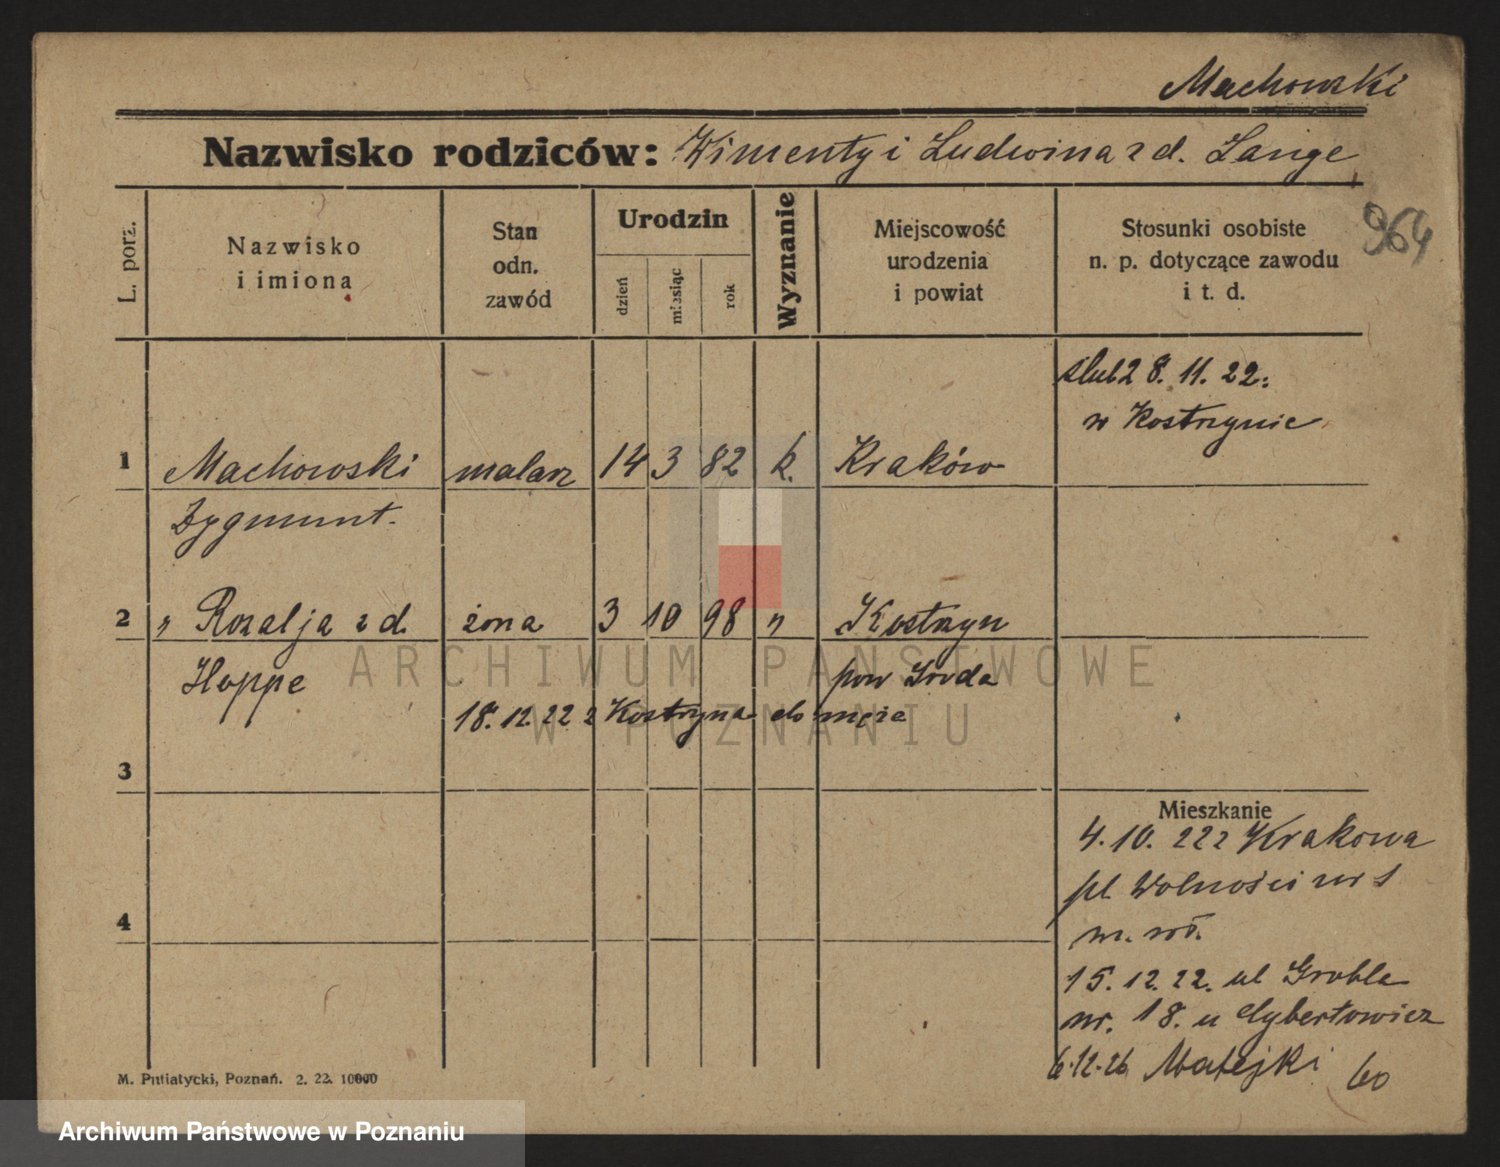 Machowski
Nazwisko rodziców: Wincenty i Ludwina z d. Lange
964
L. porz.
Nazwisko i imiona
Stan odn. zawód
Urodzin
dzień
miesiąc
rok
Wyznanie
Miejscowość urodzenia i powiat
Stosunki osobiste n. p. dotyczące zawodu i t. d.
ślub 28. 11. 22.
w Kostrzynie
1 Machowski malarz 14 3 82 k. Kraków
Zygmunt.
2 " Rozalja z d. żona 3 10 98 " Kostrzyn
Hoppe pow Środa
18. 12. 22 z Kostrzyna do męża
3
Mieszkanie
4. 10. 22 z Krakowa
pl Wolności nr 1
4
15. 12. 22. ul Grobla
nr. 18. u
6.12.26 Matejki 60
M. Putiatycki, Poznań. 2. 22. 10000
ARCHIWUM PAŃSTWOWE
W POZNANIU
Archiwum Państwowe w Poznaniu